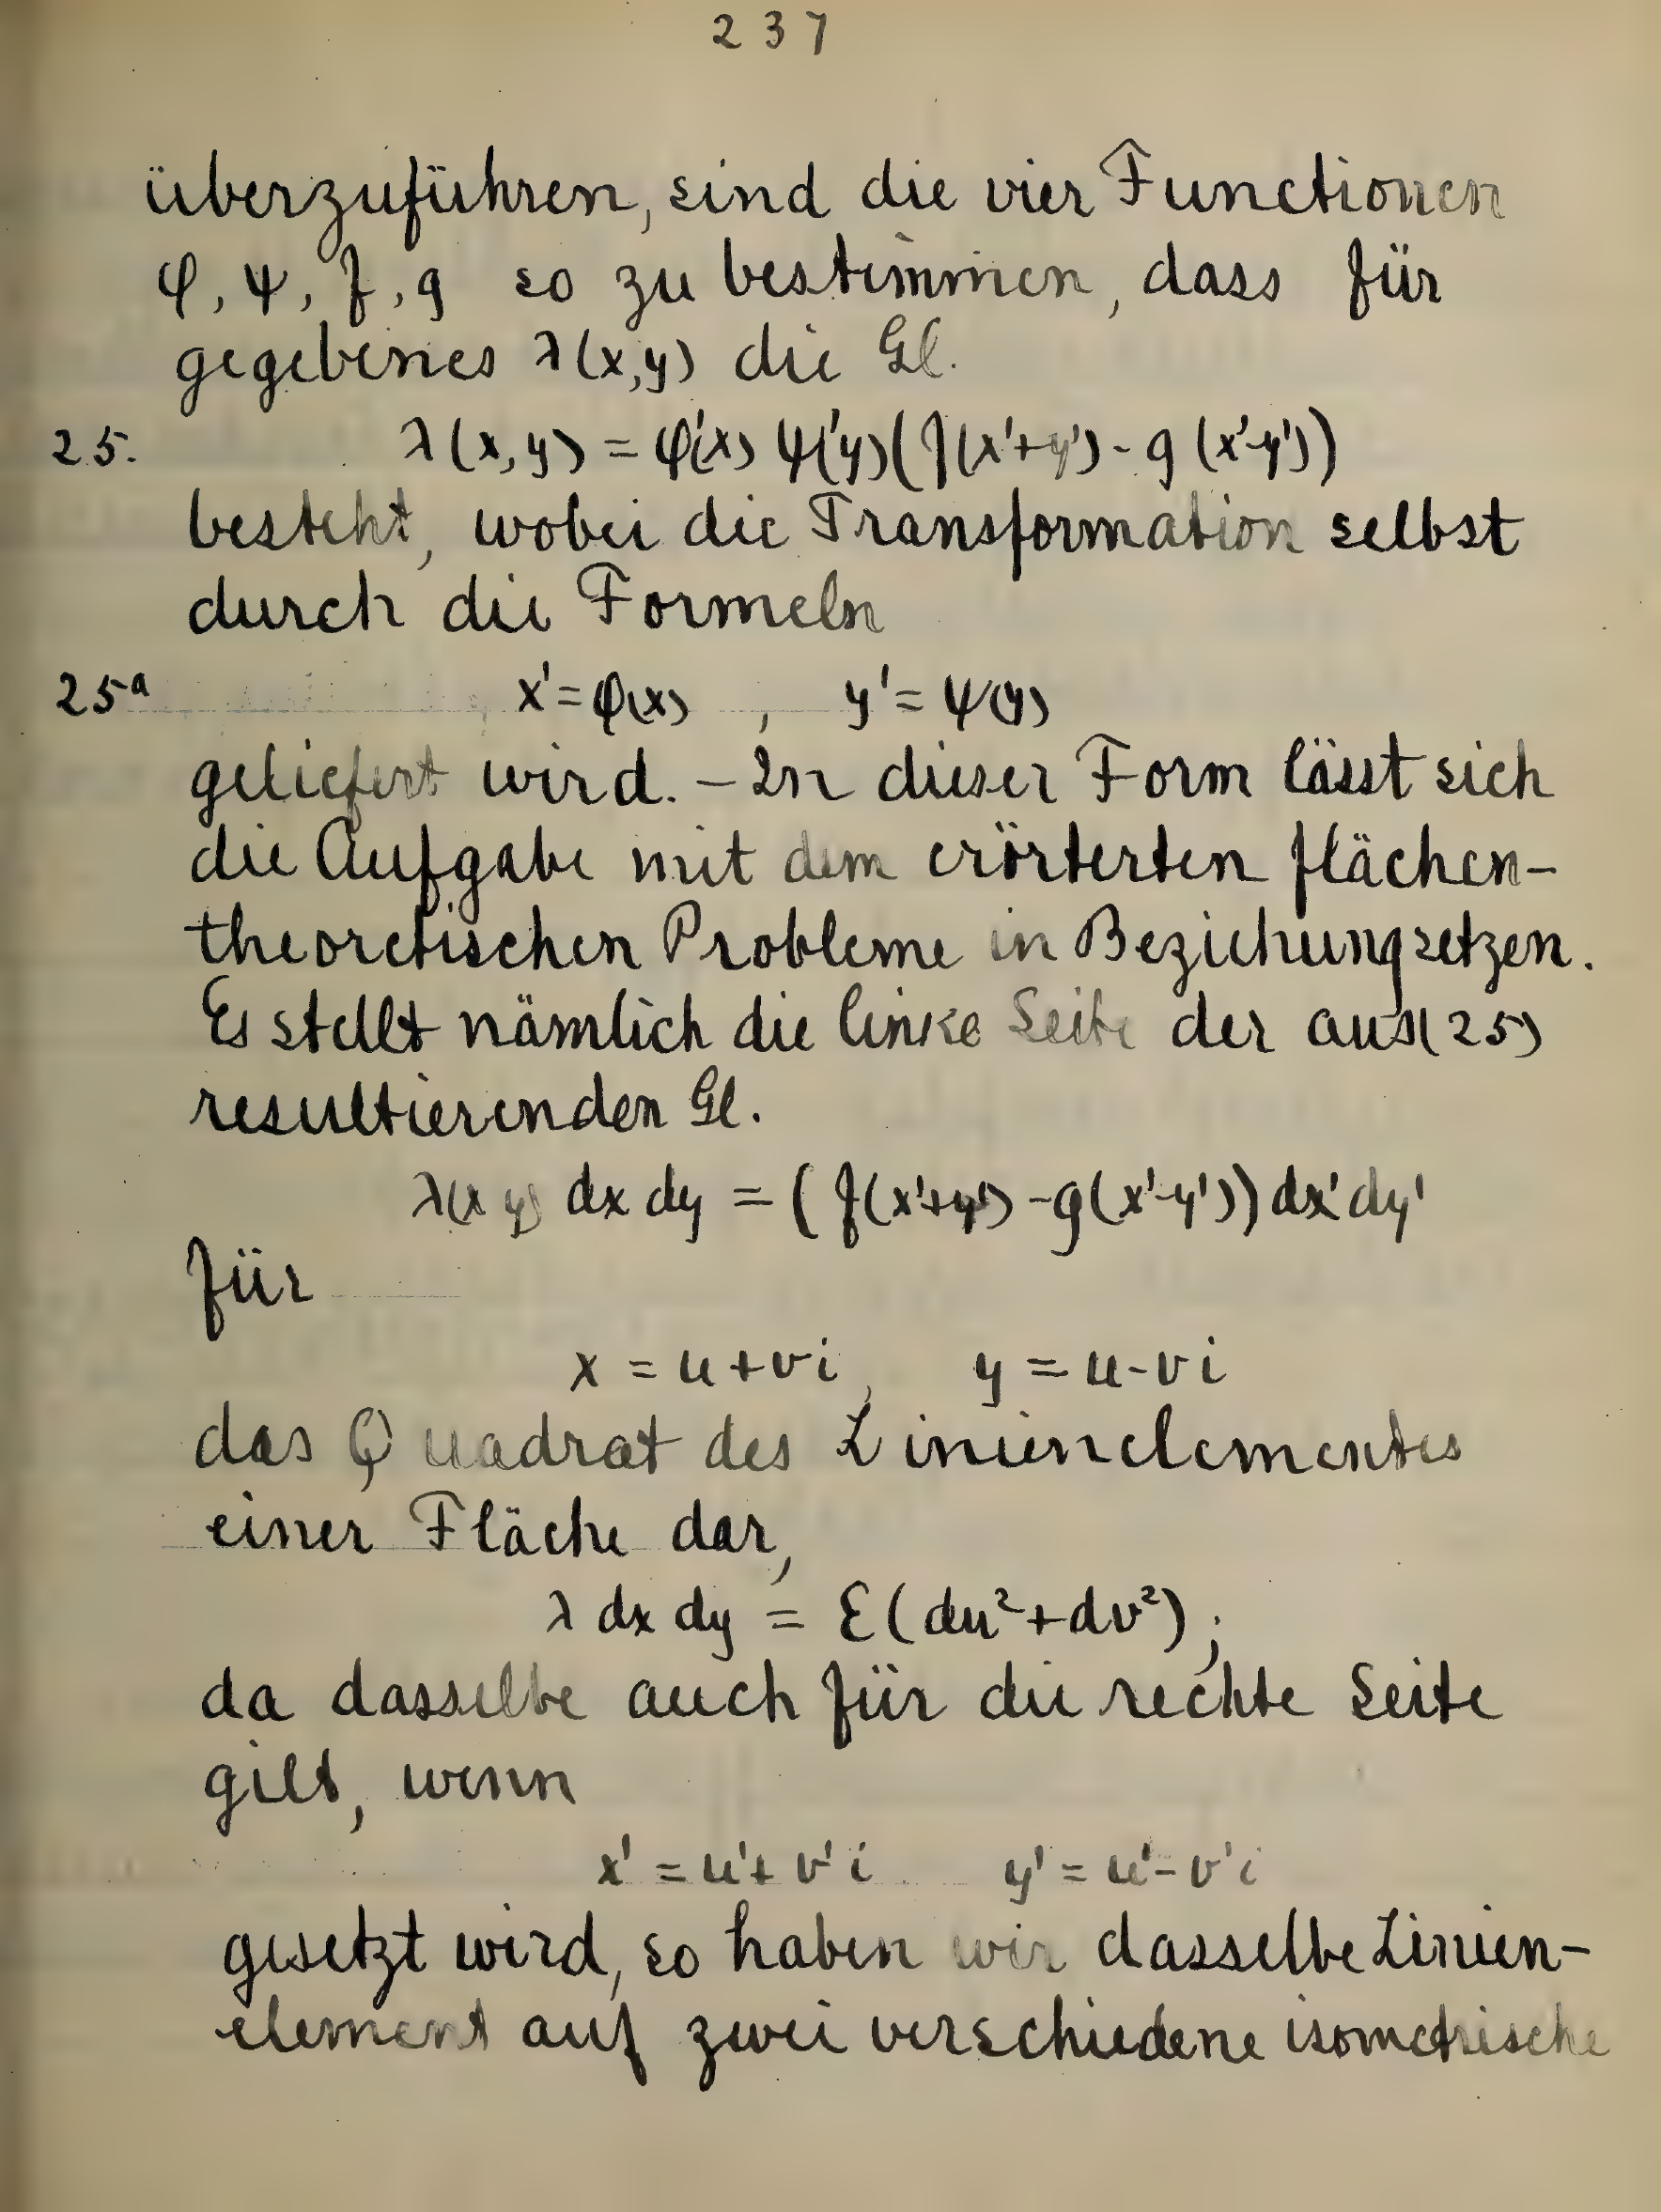 237
überzuführen, sind die vier Functionen
φ, ψ, f, g so zu bestimmen, dass für
gegebenes λ(x,y) die Gl.
25. λ(x,y) = φ'(x) ψ'(y)(f(x'+y') - g(x'-y'))
besteht, wobei die Transformation selbst
durch die Formeln
25ᵃ x' = φ(x) , y' = ψ(y)
geliefert wird. – In dieser Form lässt sich
die Aufgabe mit dem erörterten flächen-
theoretischen Probleme in Beziehung setzen.
Es stellt nämlich die linke Seite der aus (25)
resultierenden Gl.
λ(x y) dx dy = (f(x'+y') - g(x'-y')) dx' dy'
für
x = u + vi, y = u - vi
das Quadrat des Linienelementes
einer Fläche dar,
λ dx dy = E(du² + dv²);
da dasselbe auch für die rechte Seite
gilt, wenn
x' = u' + v'i y' = u' - v'i
gesetzt wird, so haben wir dasselbe Linien-
element auf zwei verschiedene isometrische